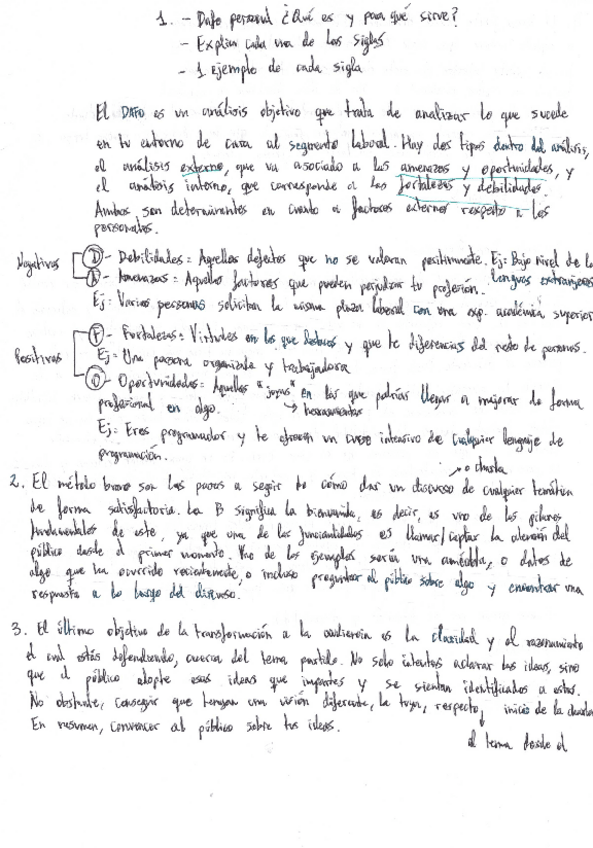 1. - Dafo personal ¿Qué es y para qué sirve?
- Explica cada una de las siglas
- 1 Ejemplo de cada sigla
El DAFO es un análisis objetivo que trata de analizar lo que sucede
en tu entorno de cara al segmento laboral. Hay dos tipos dentro del análisis,
el análisis externo, que va asociado a las amenazas y oportunidades, y
el análisis interno, que corresponde a las fortalezas y debilidades.
Ambos son determinantes en cuanto a factores externos respecto a los
personales.
Negativos
D - Debilidades = Aquellos defectos que no se valoran positivamente. Ej: Bajo nivel de
lenguas extranjeras
A - Amenazas = Aquellos factores que pueden perjudicar tu profesión.
Ej: Varias personas solicitan la misma plaza laboral con una exp. académica superior
Positivos
F - Fortalezas = Virtudes en las que destacas y que te diferencias del resto de personas.
Ej = Una persona organizada y trabajadora
O - Oportunidades = Aquellas "joyas" en las que podrías llegar a mejorar de forma
→ herramientas
profesional en algo.
Ej: Eres programador y te ofrecen un curso intensivo de cualquier lenguaje de
programación.
→ o charla
2. El método bravo son los pasos a seguir de cómo dar un discurso de cualquier temática
de forma satisfactoria. La B significa la bienvenida, es decir, es uno de los pilares
fundamentales de este, ya que una de las es llamar/captar la atención del
público desde el primer momento. Uno de los ejemplos sería una anécdota, o datos de
algo que ha ocurrido recientemente, o incluso preguntar al público sobre algo y encontrar una
respuesta a lo largo del discurso.
3. El último objetivo de la transformación a la audiencia es la claridad y el razonamiento
el cual estás defendiendo, acerca del tema partido. No solo intentas aclarar las ideas, sino
que el público adopte esas ideas que impartes y se sientan identificados a estas.
No obstante, conseguir que tengan una visión diferente, la tuya, respecto inicio de la charla
al tema desde el
En resumen, convencer al público sobre tus ideas.